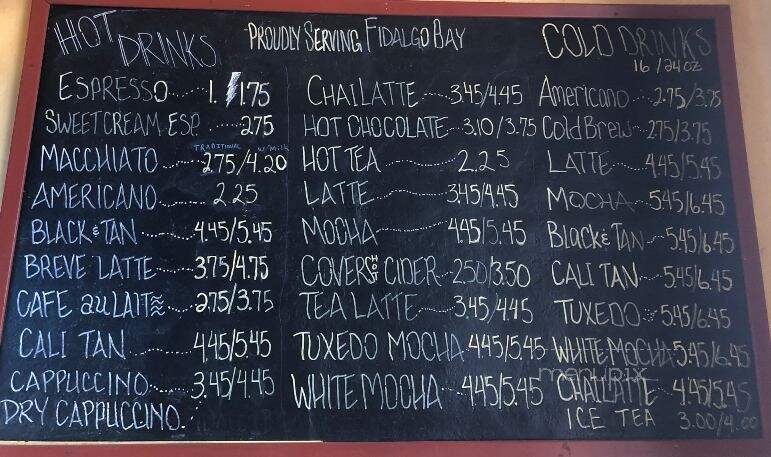 HOT DRINKS
ESPRESSO 1. 1.75
SWEETCREAM ESP. 2.75
TRADITIONAL w/ Milk
MACCHIATO 2.75/4.20
AMERICANO 2.25
BLACK & TAN 4.45/5.45
BREVE LATTE 3.75/4.75
CAFE au LAIT 2.75/3.75
CALI TAN 4.45/5.45
CAPPUCCINO 3.45/4.45
DRY CAPPUCCINO
PROUDLY SERVING FIDALGO BAY
CHAI LATTE 3.45/4.45
HOT CHOCOLATE 3.10/3.75
HOT TEA 2.25
LATTE 3.45/4.45
MOCHA 4.45/5.45
COVER HOT CIDER 2.50/3.50
TEA LATTE 3.45/4.45
TUXEDO MOCHA 4.45/5.45
WHITE MOCHA 4.45/5.45
COLD DRINKS
16/24oz
Americano 2.75/3.75
Cold Brew 2.75/3.75
LATTE 4.45/5.45
MOCHA 5.45/6.45
Black & TAN 5.45/6.45
CALI TAN 5.45/6.45
TUXEDO 5.45/6.45
WHITE MOCHA 5.45/6.45
menupix
CHAI LATTE 4.45/5.45
ICE TEA 3.00/4.00